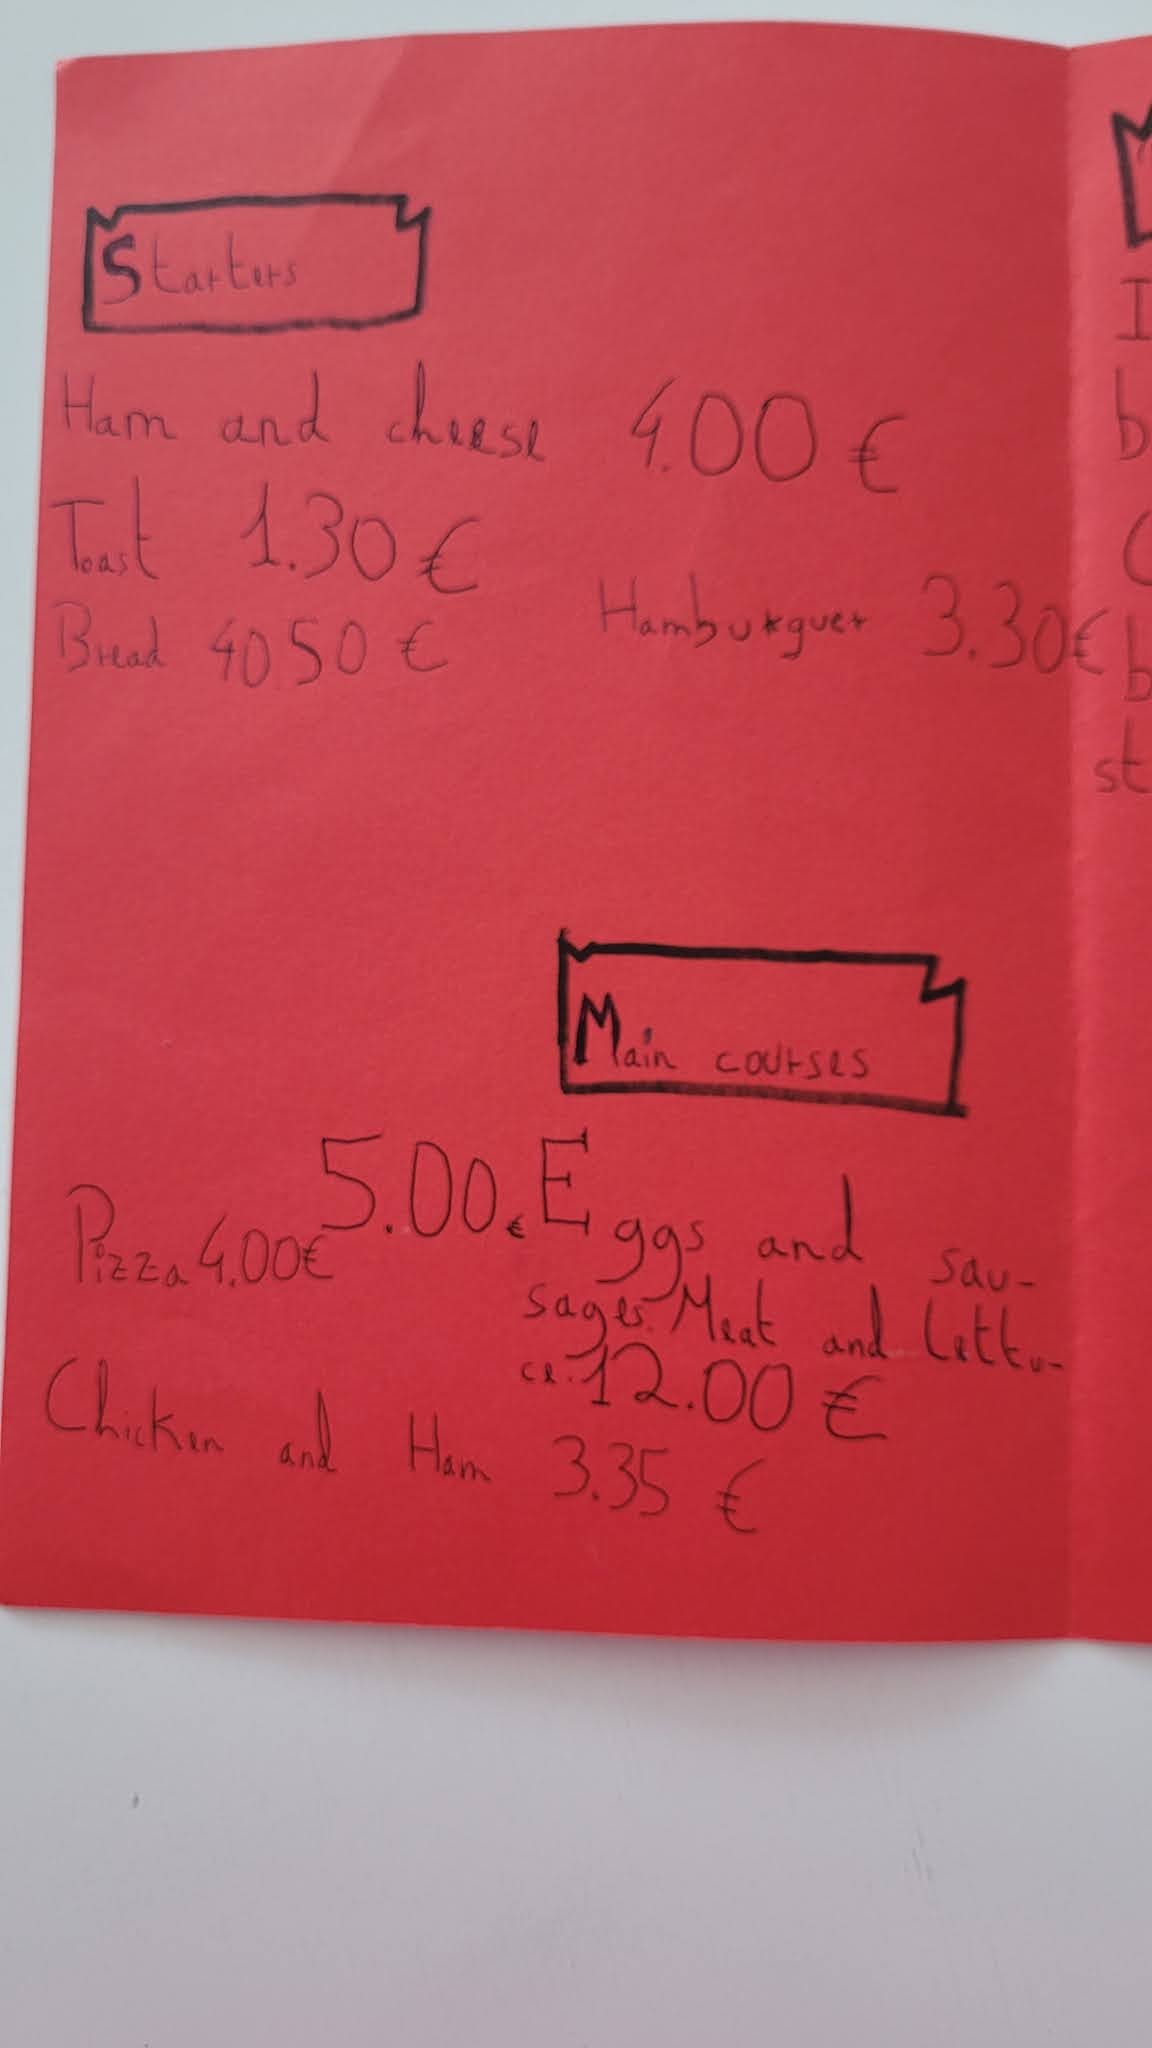 Starters
Ham and cheese 4.00 €
Toast 1.30 €
Bread 4050 €
Hamburguer 3.30€
Main courses
5.00.€ Eggs and sau-
sages. Meat and lettu-
ce. 12.00 €
Pizza 4.00€
Chicken and Ham 3.35 €
st